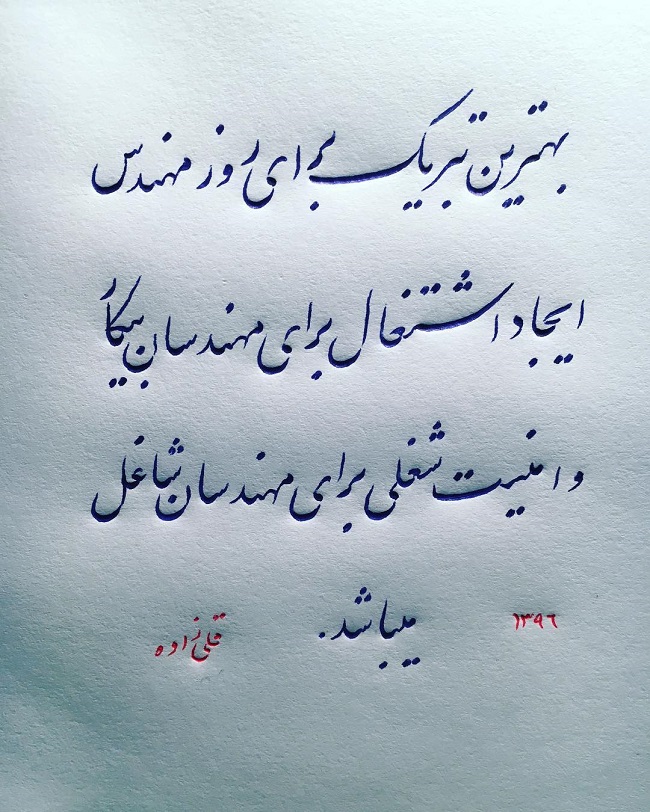 بهترین تبریک برای روز مهندس
ایجاد اشتغال برای مهندسان بیکار
و امنیت شغلی برای مهندسان شاغل
میباشد.
۱۳۹۶
قلی‌زاده